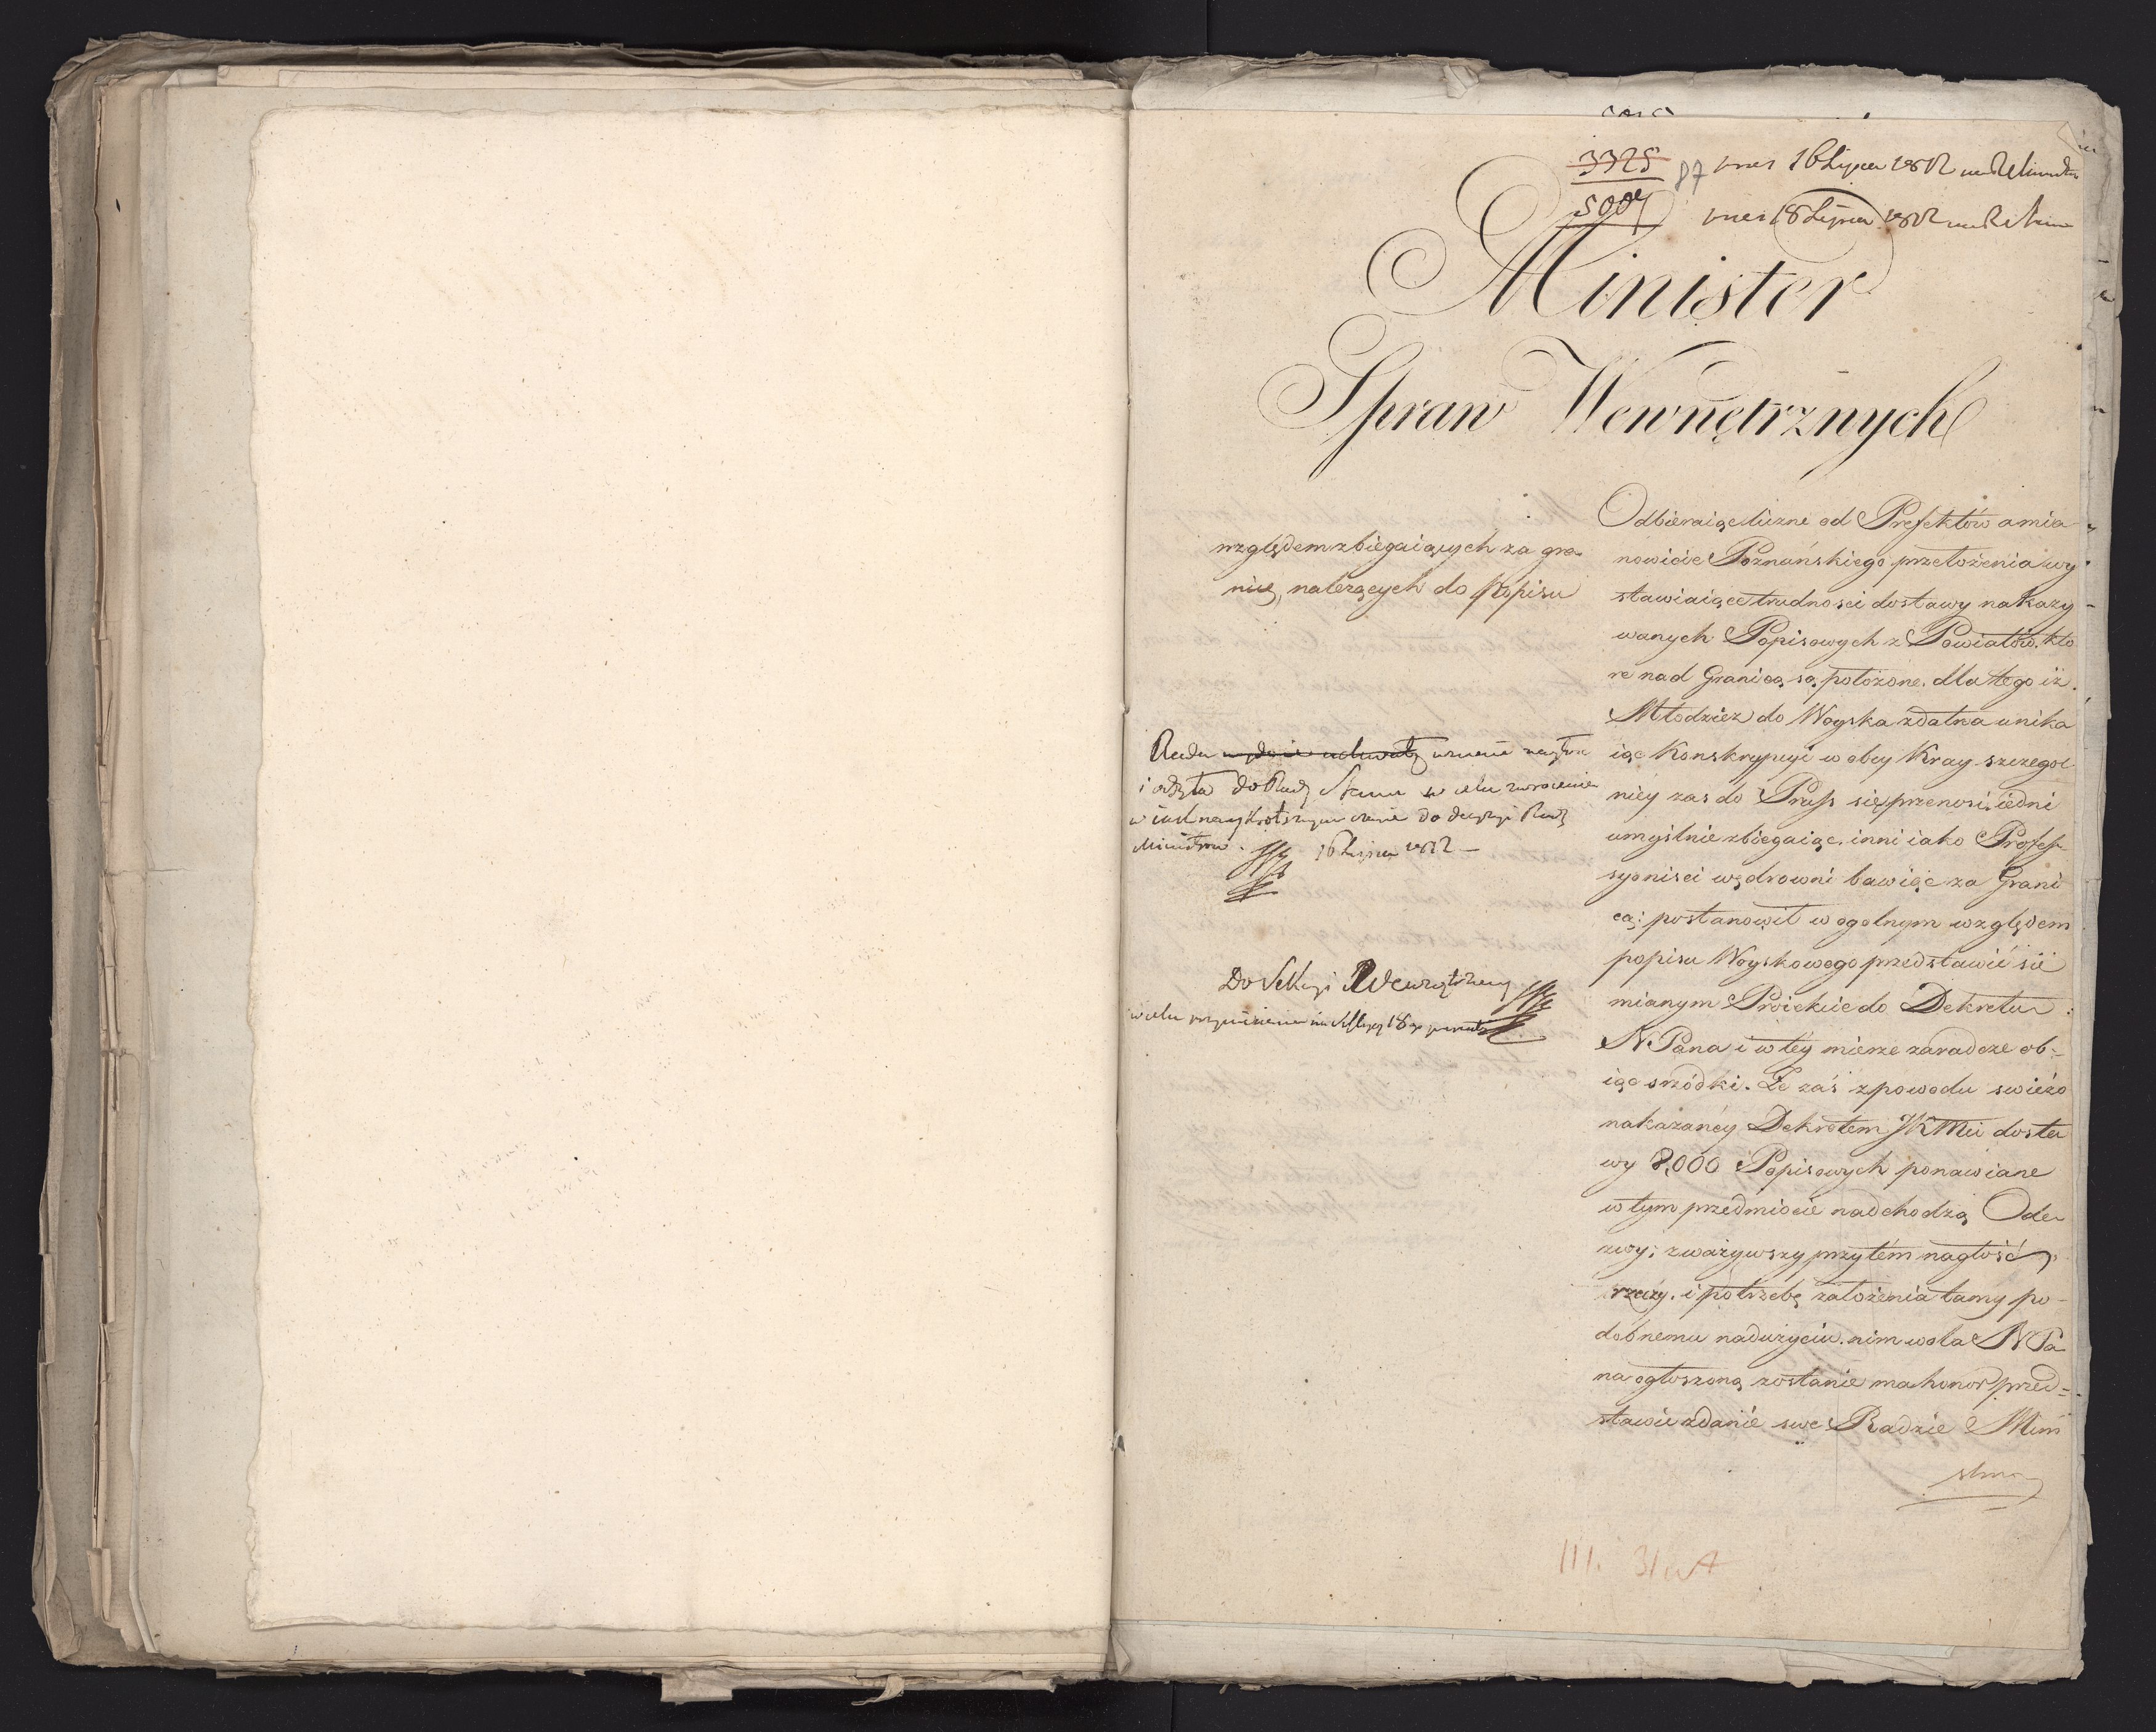 3325
87 wnes 16 Lipca 1812
5007
wnes 18 Lipca 1812
Minister
Spraw Wewnętrznych
względem zbiegaiących za gra-
nicę, należących do Popisu
Rada wydanie uchwały
i odsyła do Rady Stanu w celu zwrócenia
w iak nayskrótszym czasie do decyzyi Rady
Ministrów. 16 Lipca 1812 —
Do Sekcyi Wewnętrzney
w celu 18
Odbieraiąc liczne od Prefektów a mia-
nowicie Poznańskiego przełożenia wy-
stawiaiące trudności dostawy nakazy-
wanych Popisowych z Powiatów, któ
re nad Granicą są położone, dla tego iż
Młodzież do Woyska zdatna unika
iąc Konskrypcyi w obcy Kray szczegól
niey zas do Pruss się przenosi, iedni
umyślnie zbiegaiąc, inni iako Profes-
syonisci wędrowni bawiąc za Grani
cą; postanowił w ogolnym względem
popisu Woyskowego przedstawić się
mianym Proiekcie do Dekretu
N. Pana i w tey mierze zaradcze ob-
iąc srzódki. Że zaś z powodu swieżo
nakazaney Dekretem JKMci dosta
wy 8,000 Popisowych ponawiane
w tym przedmiocie nadchodzą Ode
zwy; zważywszy przytém nagłość
rzeczy, i potrzebę założenia tamy po-
dobnemu nadużyciu, nim wola N Pa
na ogłoszoną zostanie ma honor przed-
stawić zdanie swe Radzie Mini
strów
III. 31